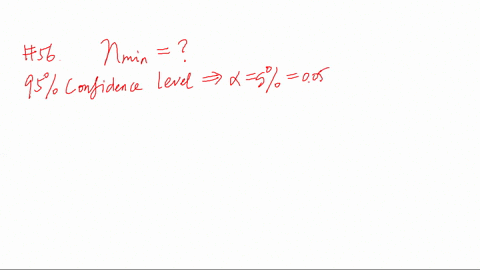 #56. n min = ?
95% Confidence level ⇒ α = 5% = 0.05